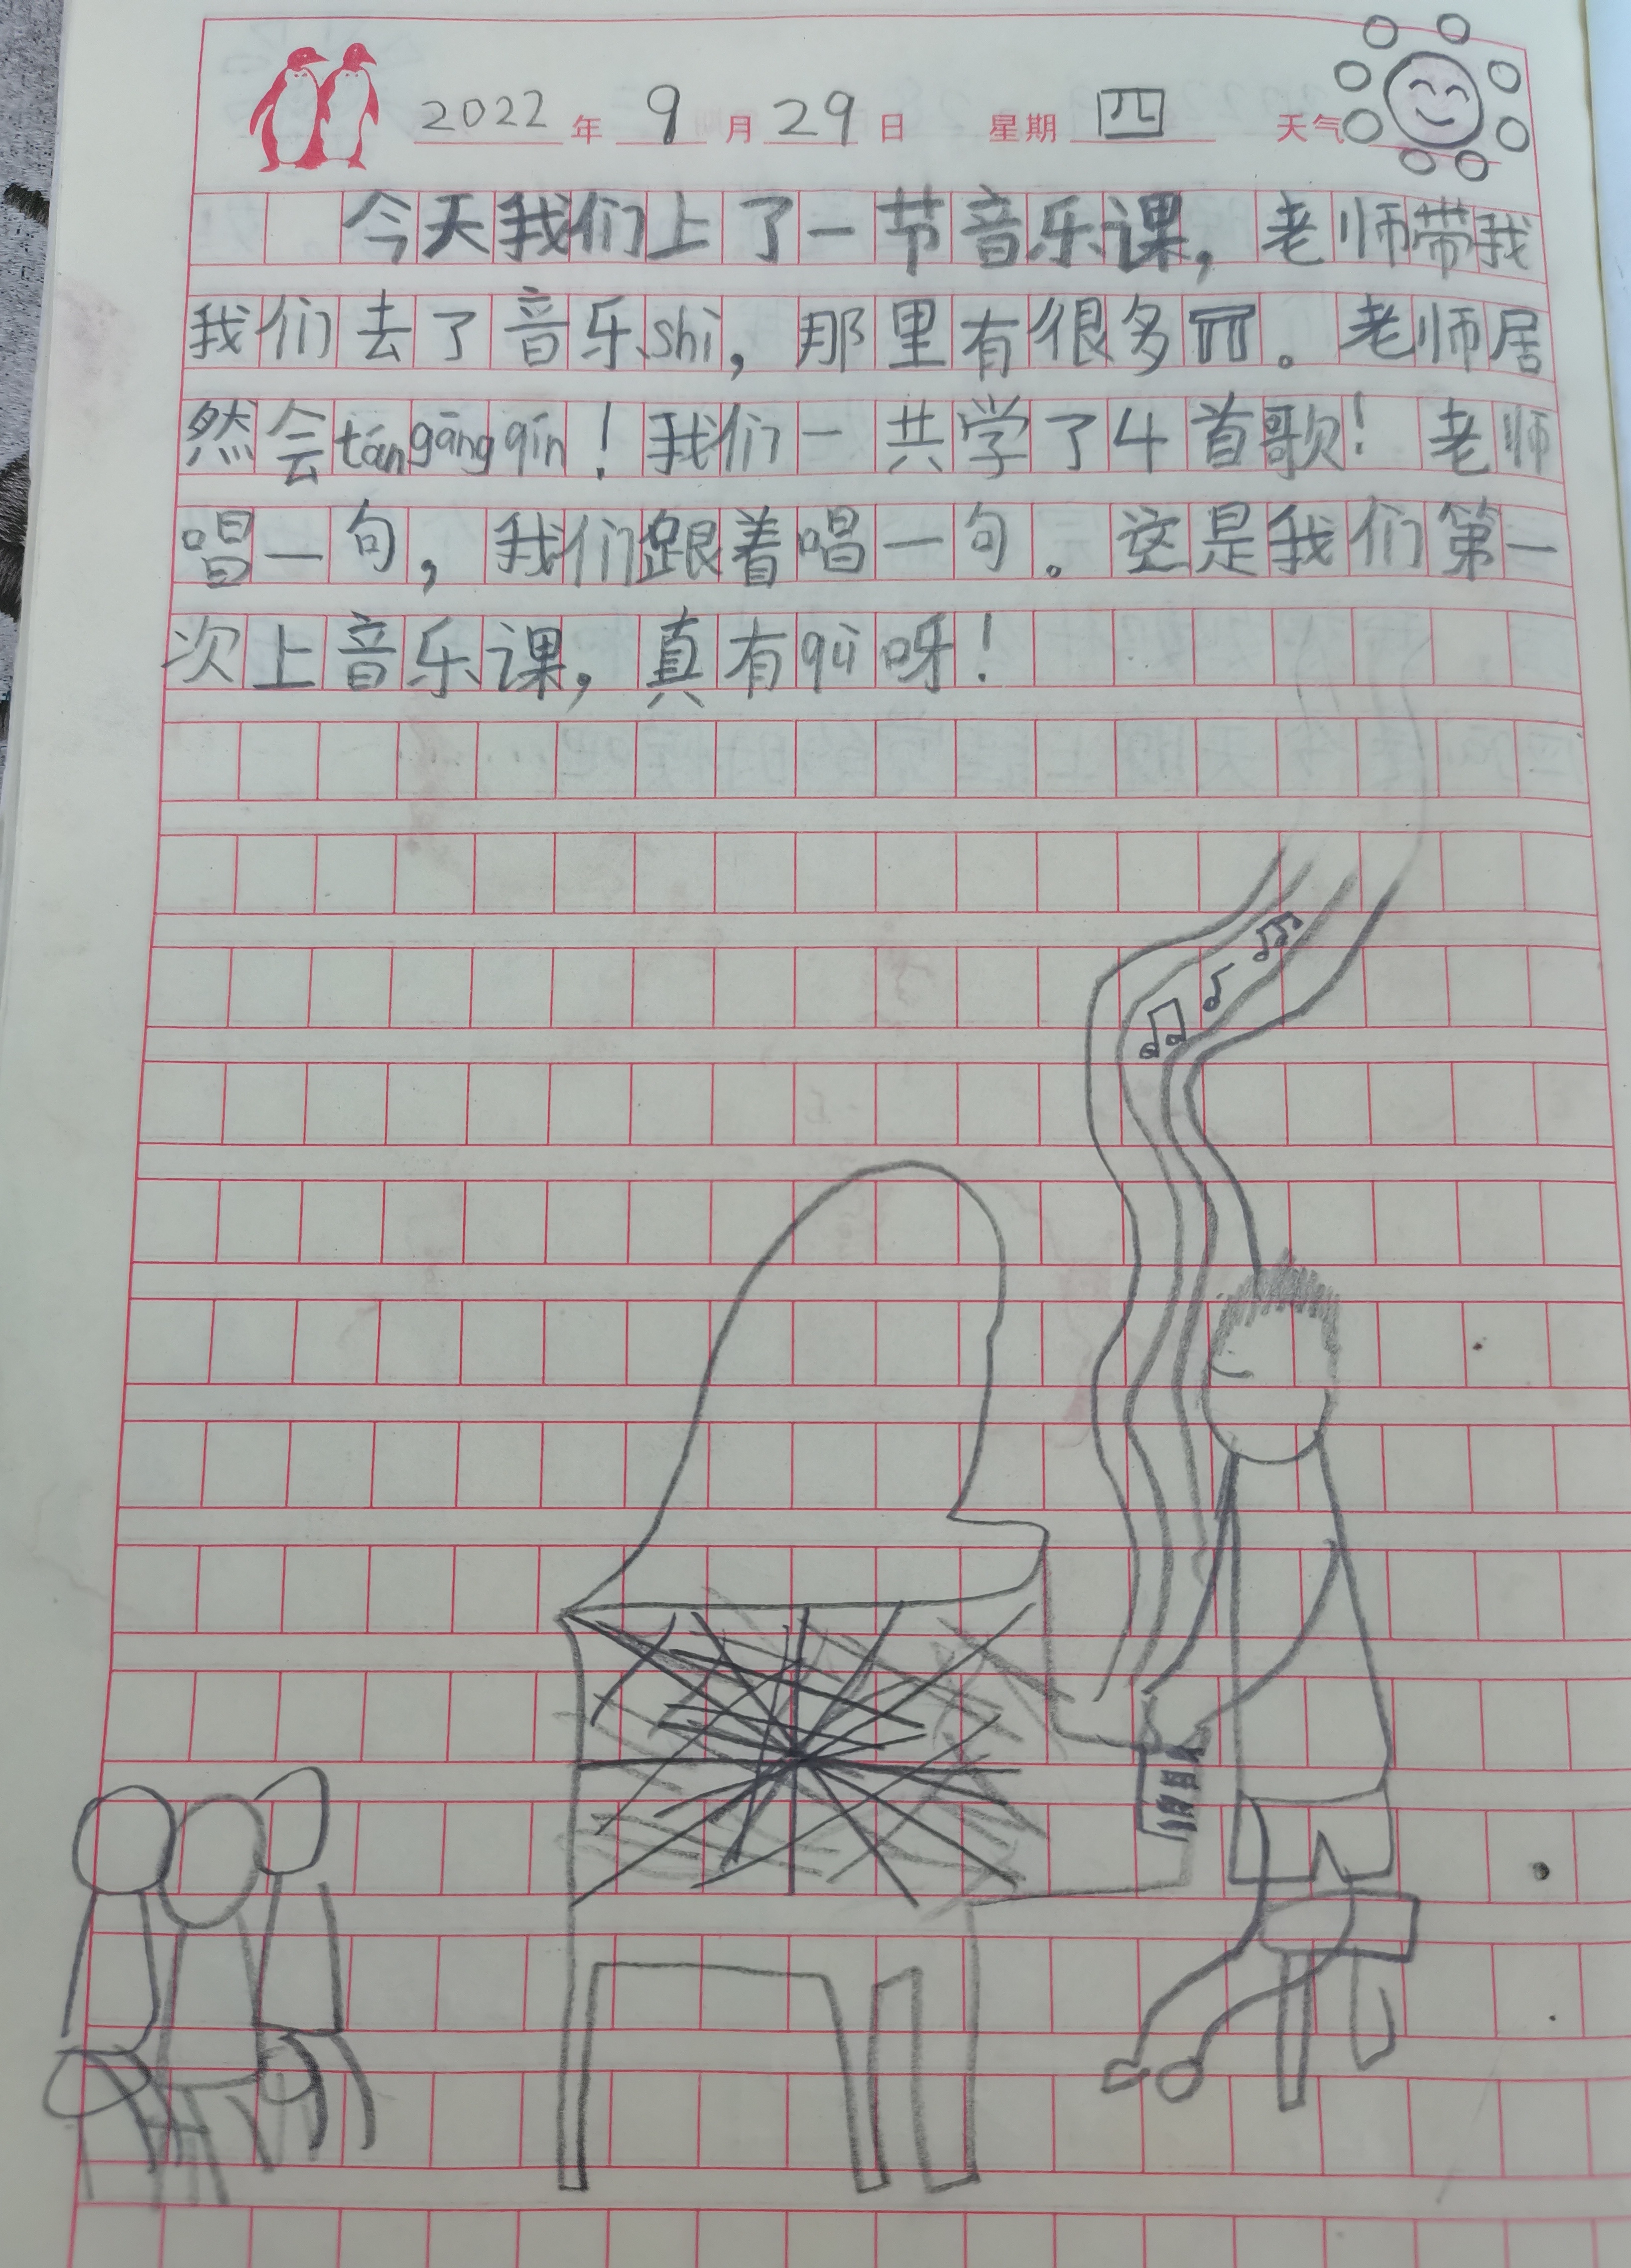 2022年9月29日 星期四 天气
今天我们上了一节音乐课，老师带我
我们去了音乐shì，那里有很多。老师居
然会tángāngqín！我们一共学了4首歌！老师
唱一句，我们跟着唱一句。这是我们第一
次上音乐课，真有qù呀！